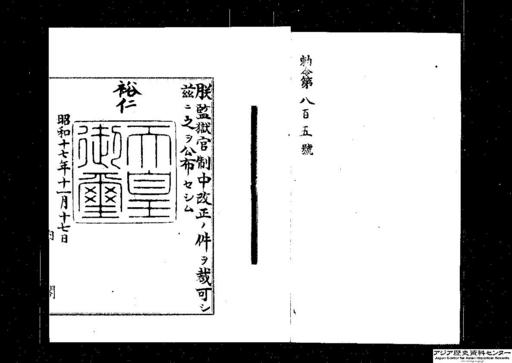 勅令第八百五號
朕監獄官制中改正ノ件ヲ裁可シ
茲ニ之ヲ公布セシム
裕仁
天皇
御璽
昭和十七年十一月十七日
内閣
アジア歴史資料センター
Japan Center for Asian Historical Records